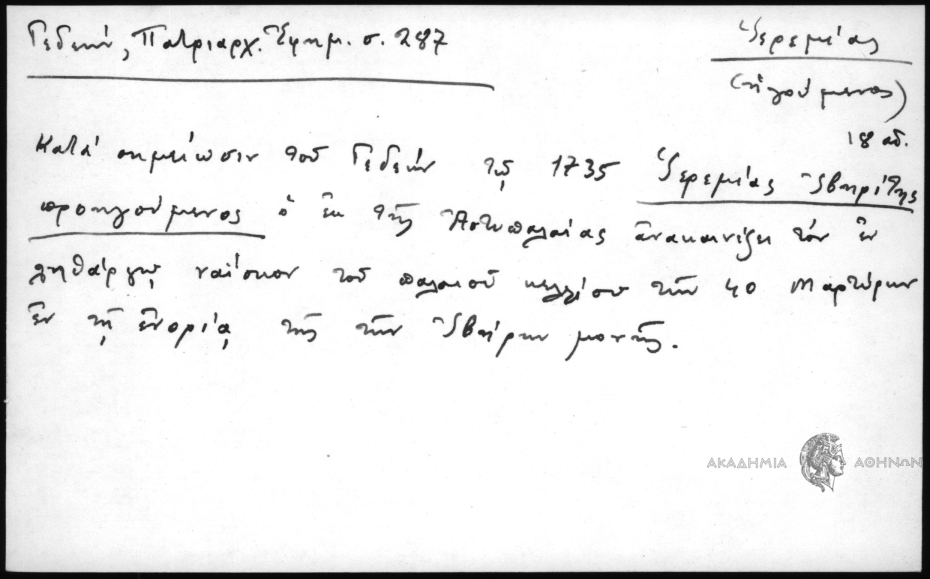 Γεδεών, Πατριαρχ. Ἐφημ. σ. 287
Ἱερεμίας
(ἡγούμενος)
18 αἰ.
Κατά σημείωσιν τοῦ Γεδεών τῷ 1735 Ἱερεμίας Ἰβηρίτης
προηγούμενος ὁ ἐκ τῆς Ἀστυπαλαίας ἀνακαινίζει τόν ἐν
ληθάργῳ ναΐσκον τοῦ παλαιοῦ κελλίου τῶν 40 Μαρτύρων
ἐν τῇ ἐνορίᾳ τῆς τῶν Ἰβήρων μονῆς.
ΑΚΑΔΗΜΙΑ ΑΘΗΝΩΝ